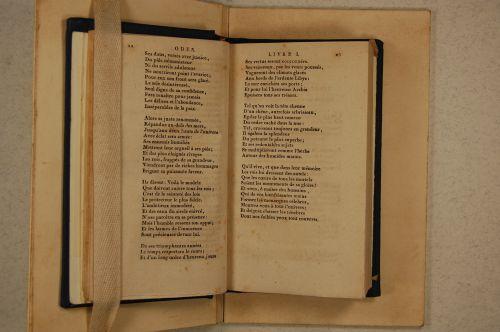 22
ODES.
Ses dons, versés avec justice,
Du pâle calomniateur
Ni du servile adulateur
Ne nourriront point l'avarice ;
Pour eux son front sera glacé.
Le zèle désintéressé,
Seul digne de sa confidence,
Fera renaître pour jamais
Les délices et l'abondance,
Inséparables de la paix.
Alors sa juste renommée,
Répandue au-delà des mers,
Jusqu'aux deux bouts de l'univers
Avec éclat sera semée :
Ses ennemis humiliés
Mettront leur orgueil à ses pieds ;
Et des plus éloignés rivages
Les rois, frappés de sa grandeur,
Viendront par de riches hommages
Briguer sa puissante faveur.
Ils diront : Voilà le modèle
Que doivent suivre tous les rois ;
C'est de la sainteté des lois
Le protecteur le plus fidèle.
L'ambitieux immodéré,
Et des eaux du siècle enivré,
N'ose paroître en sa présence :
Mais l'humble ressent son appui ;
Et les larmes de l'innocence
Sont précieuses devant lui.
De ses triomphantes années
Le temps respectera le cours ;
Et d'un long ordre d'heureux jours
LIVRE I.
23
Ses vertus seront couronnées.
Ses vaisseaux, par les vents poussés,
Vogueront des climats glacés
Aux bords de l'ardente Libye :
La mer enrichira ses ports ;
Et pour lui l'heureuse Arabie
Épuisera tous ses trésors.
Tel qu'on voit la tête chenue
D'un chêne, autrefois arbrisseau,
Égaler le plus haut rameau
Du cèdre caché dans la nue :
Tel, croissant toujours en grandeur,
Il égalera la splendeur
Du potentat le plus superbe ;
Et ses redoutables sujets
Se multiplieront comme l'herbe
Autour des humides marais.
Qu'il vive, et que dans leur mémoire
Les rois lui dressent des autels ;
Que les cœurs de tous les mortels
Soient les monuments de sa gloire !
Et vous, ô maître des humains,
Qui de vos bienfaisantes mains
Formez les monarques célèbres,
Montrez-vous à tout l'univers ;
Et daignez chasser les ténèbres
Dont nos foibles yeux sont couverts.